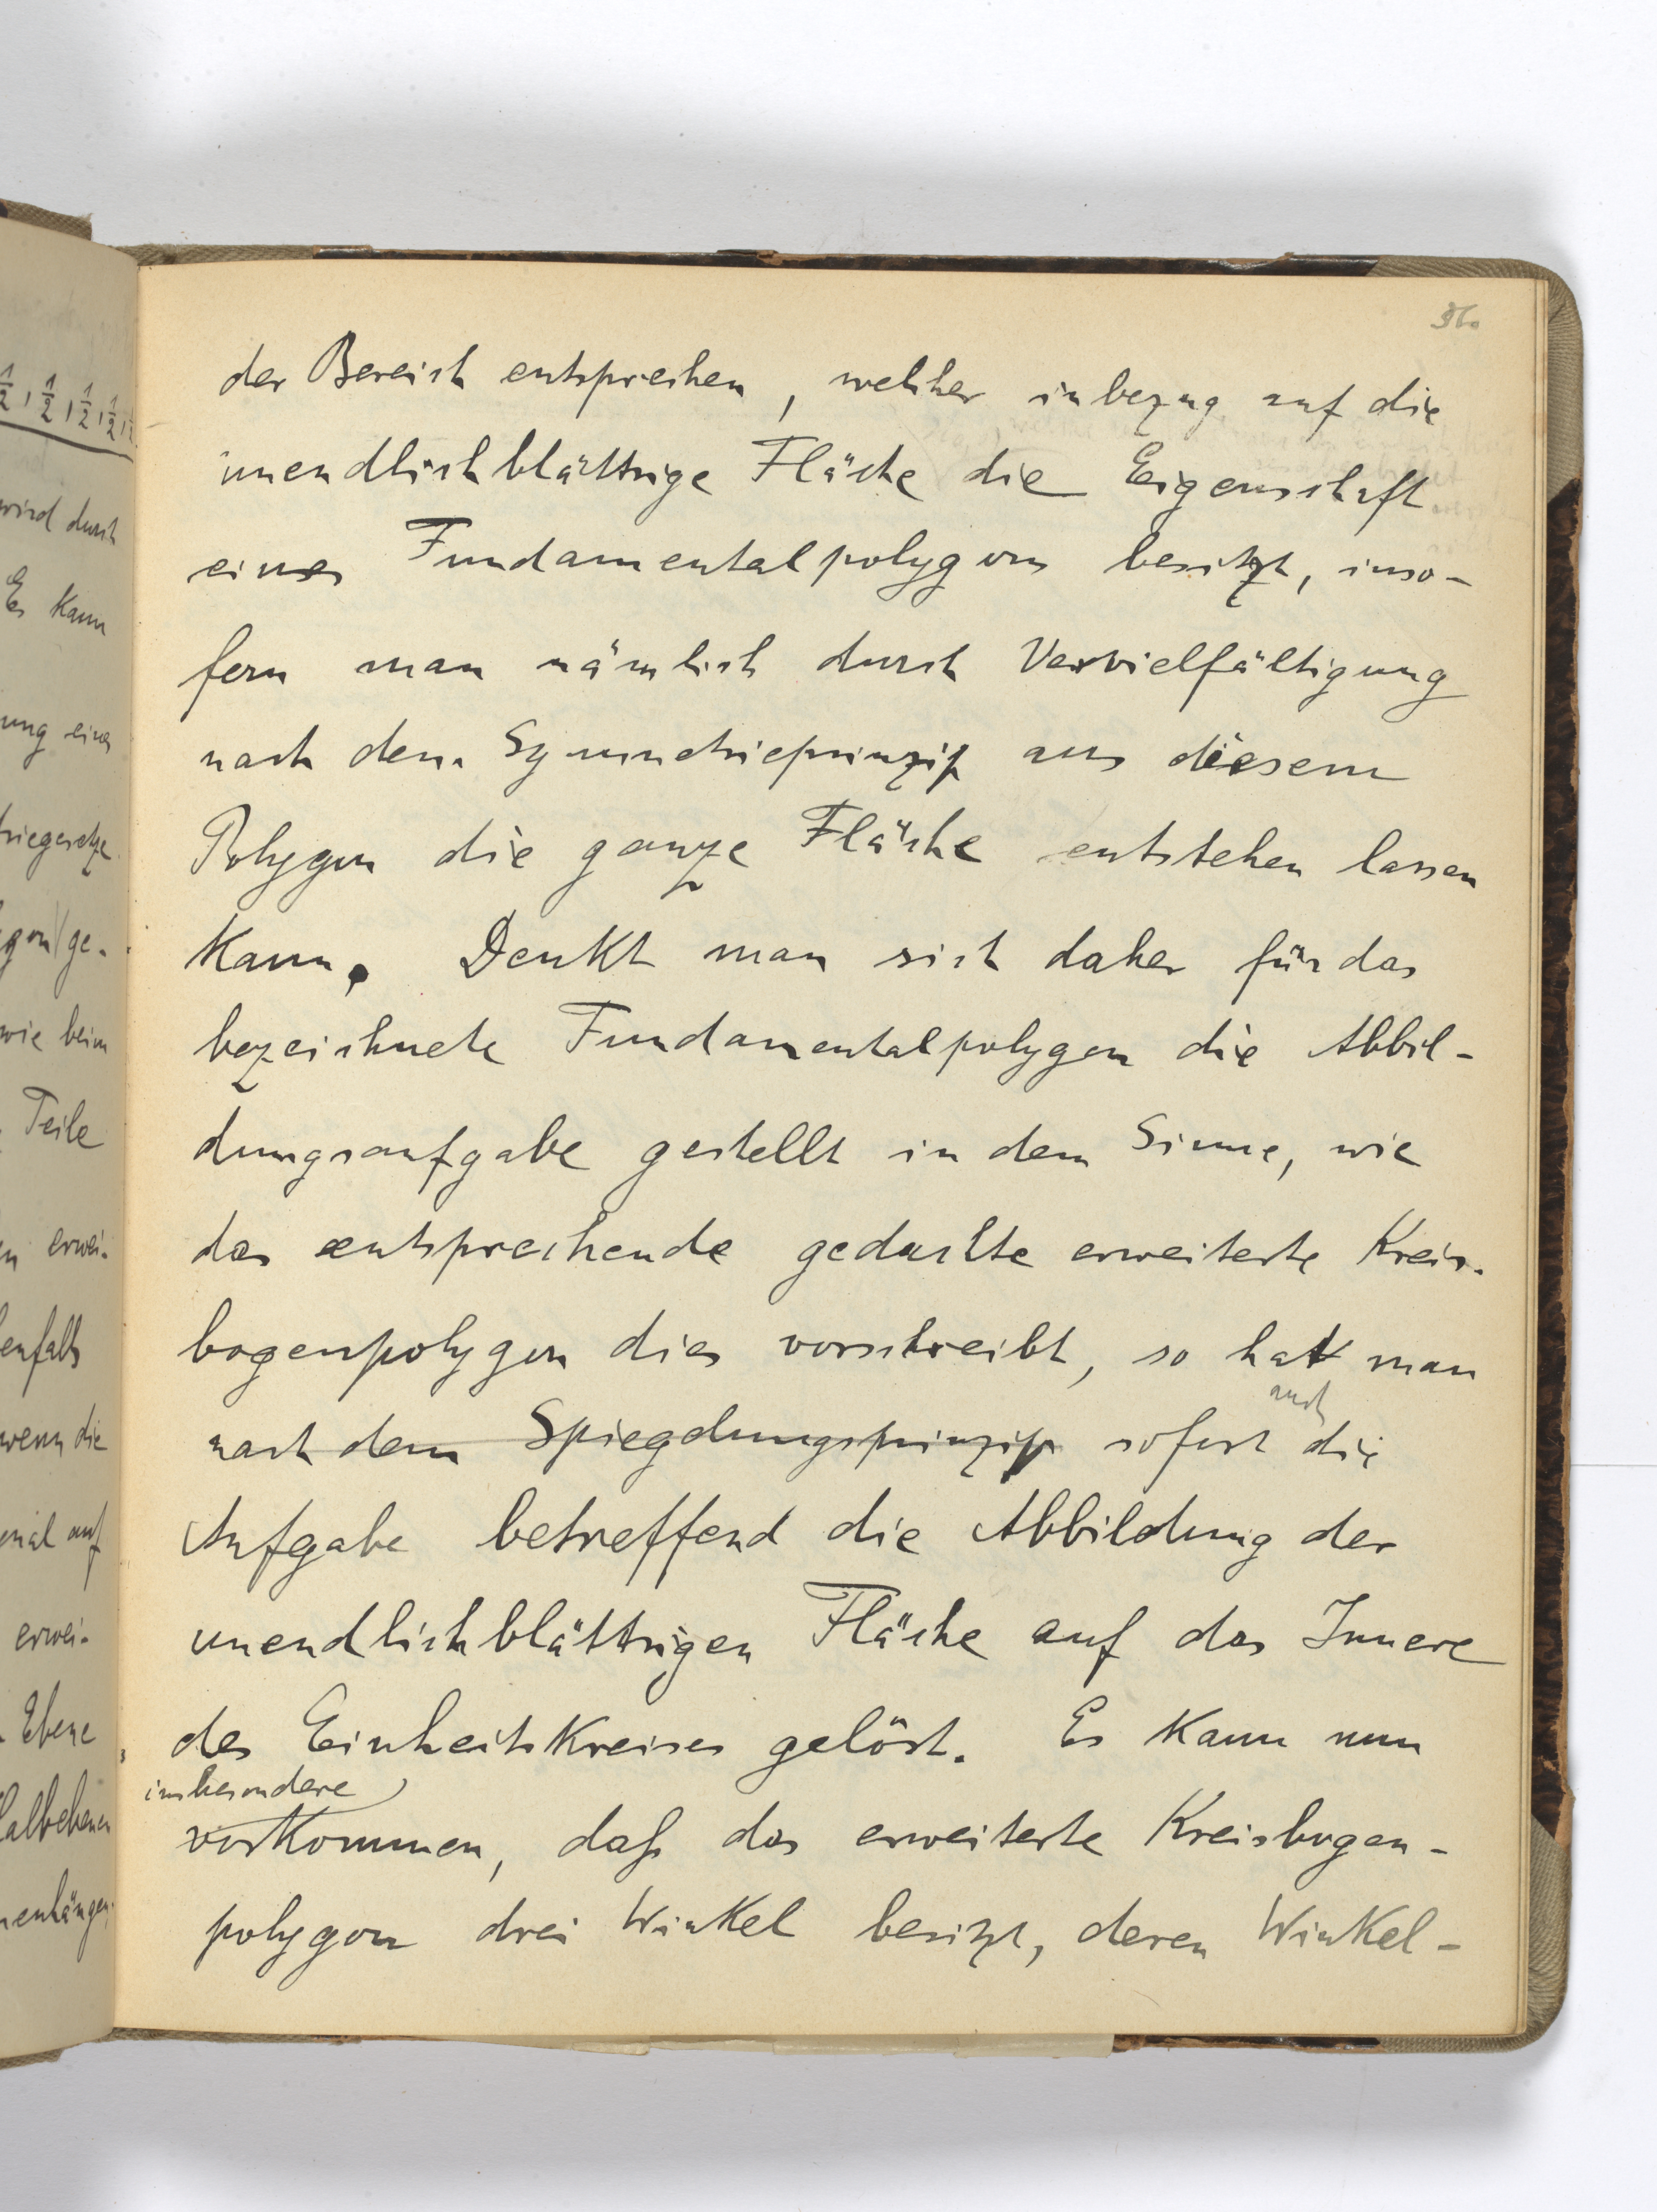 36.
der Bereich entsprechen, welcher inbezug auf die
unendlichblättrige Fläche die Eigenschaft
eines Fundamentalpolygons besitzt, inso-
fern man nämlich durch Vervielfältigung
nach dem Symmetrieprinzip aus diesem
Polygon die ganze Fläche entstehen lassen
kann. Denkt man sich daher für das
bezeichnete Fundamentalpolygon die Abbil-
dungsaufgabe gestellt in dem Sinne, wie
das entsprechende gedachte erweiterte Kreis-
bogenpolygon dies vorschreibt, so hat man
nach dem Spiegelungsprinzip sofort auch die
Aufgabe betreffend die Abbildung der
unendlichblättrigen Fläche auf das Innere
des Einheitskreises gelöst. Es kann nun
insbesondere
vorkommen, daß das erweiterte Kreisbogen-
polygon drei Winkel besitzt, deren Winkel-
1/2, 1/2, 1/2, 1/2,
wird durch
Es kann
ung eines
triegesetze
gon ge-
wie beim
Teile
erwei-
enfalls
wenn die
auf
erwei-
Ebene
Halbebenen